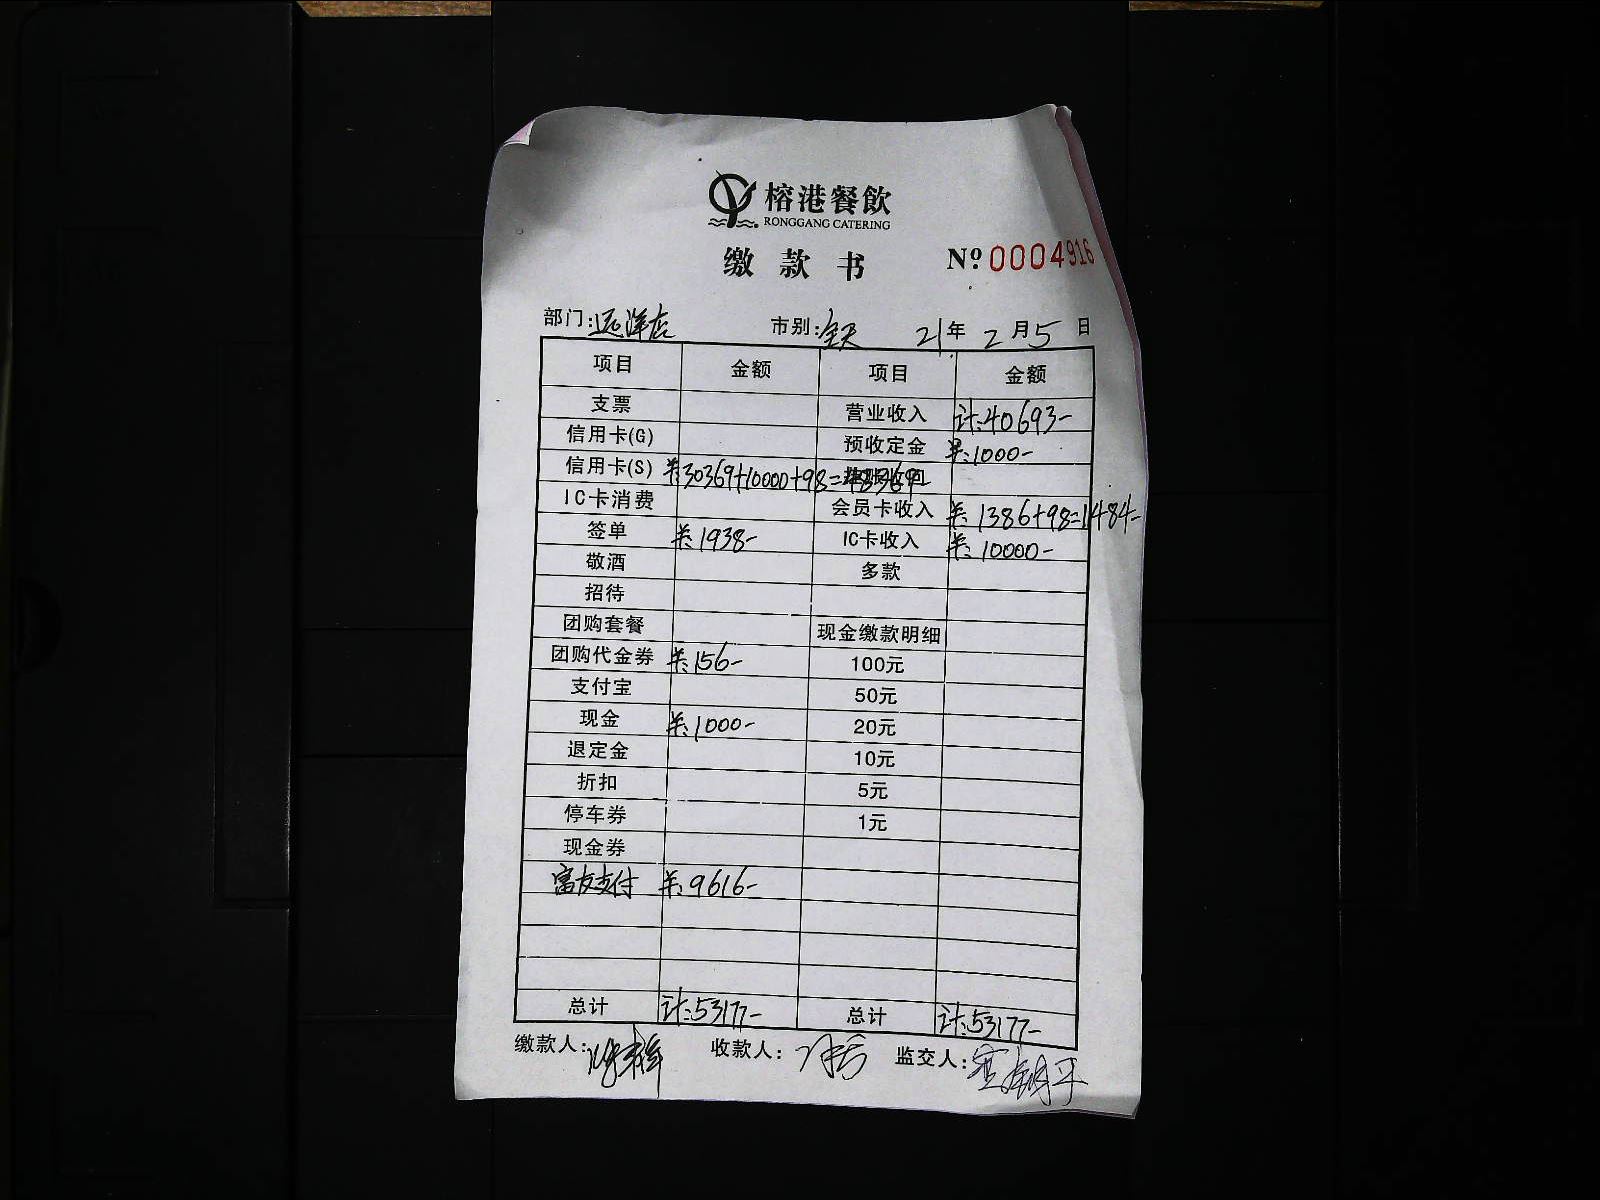 榕港餐飲
RONGGANG CATERING
缴款书 Nº 0004916
部门:远洋店 市别:全天 21年2月5日
项目 金额 项目 金额
支票 营业收入 计:40693-
信用卡(G) 预收定金 羊:1000-
信用卡(S) 羊:30369+10000+98=
IC卡消费 会员卡收入 羊:1386+98=1484-
签单 羊:1938- IC卡收入 羊:10000-
敬酒 多款
招待
团购套餐 现金缴款明细
团购代金券 羊:156- 100元
支付宝 50元
现金 羊:1000- 20元
退定金 10元
折扣 5元
停车券 1元
现金券
富友支付 羊:9616-
总计 计:53177- 总计 计:53177-
缴款人: 收款人: 监交人: